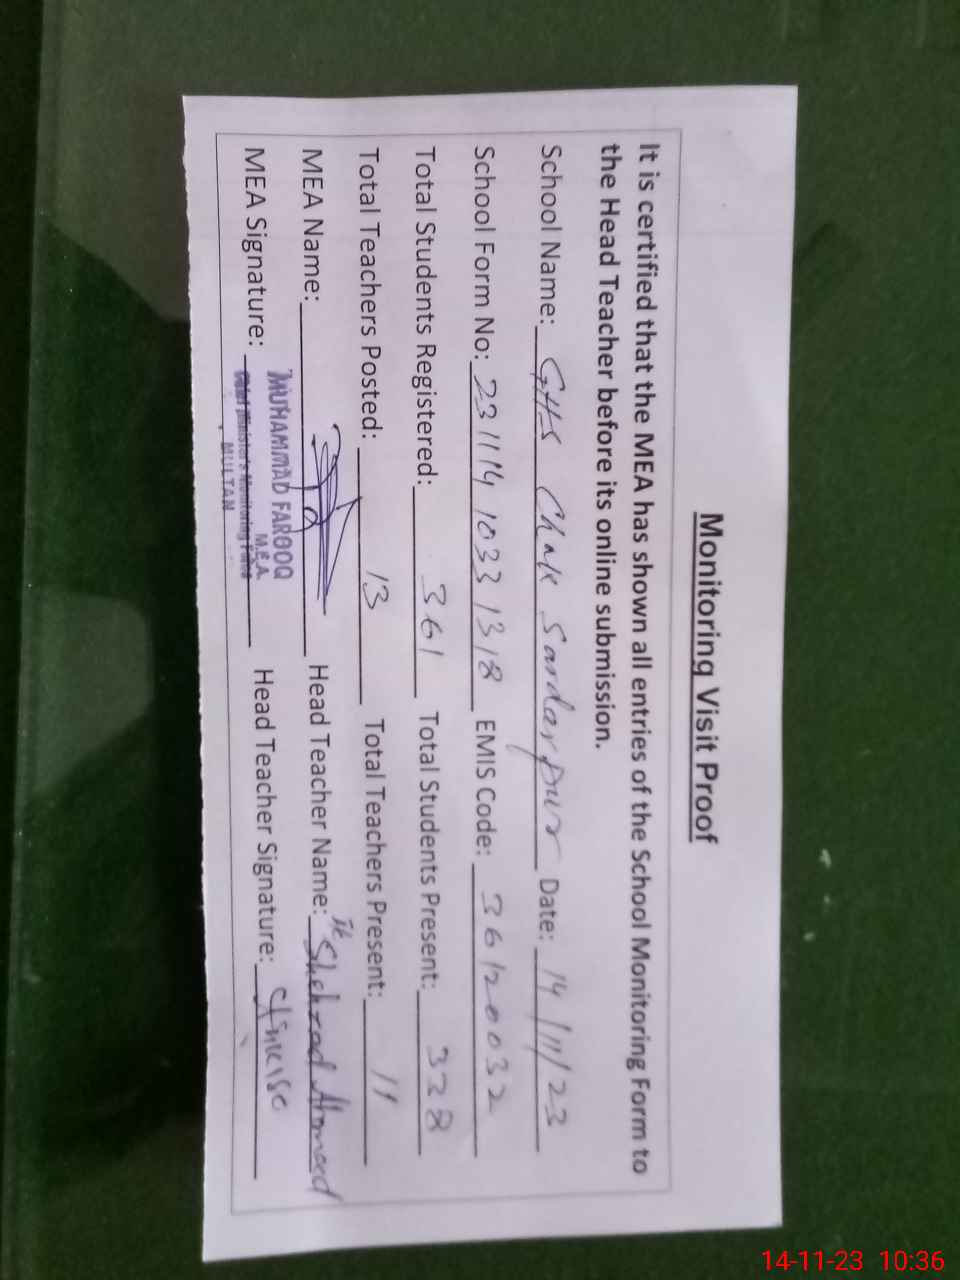 Monitoring Visit Proof
It is certified that the MEA has shown all entries of the School Monitoring Form to
the Head Teacher before its online submission.
School Name: GHS Chak Sardarpur Date: 14/11/23
School Form No: 231114 1033 1318 EMIS Code: 36120032
Total Students Registered: 361 Total Students Present: 328
Total Teachers Posted: 13 Total Teachers Present: 11
MEA Name: Head Teacher Name: Shehzad Ahmed
MEA Signature: Head Teacher Signature:
MUHAMMAD FAROOQ
M.E.A.
Chief Minister's Monitoring Force
MULTAN
14-11-23 10:36